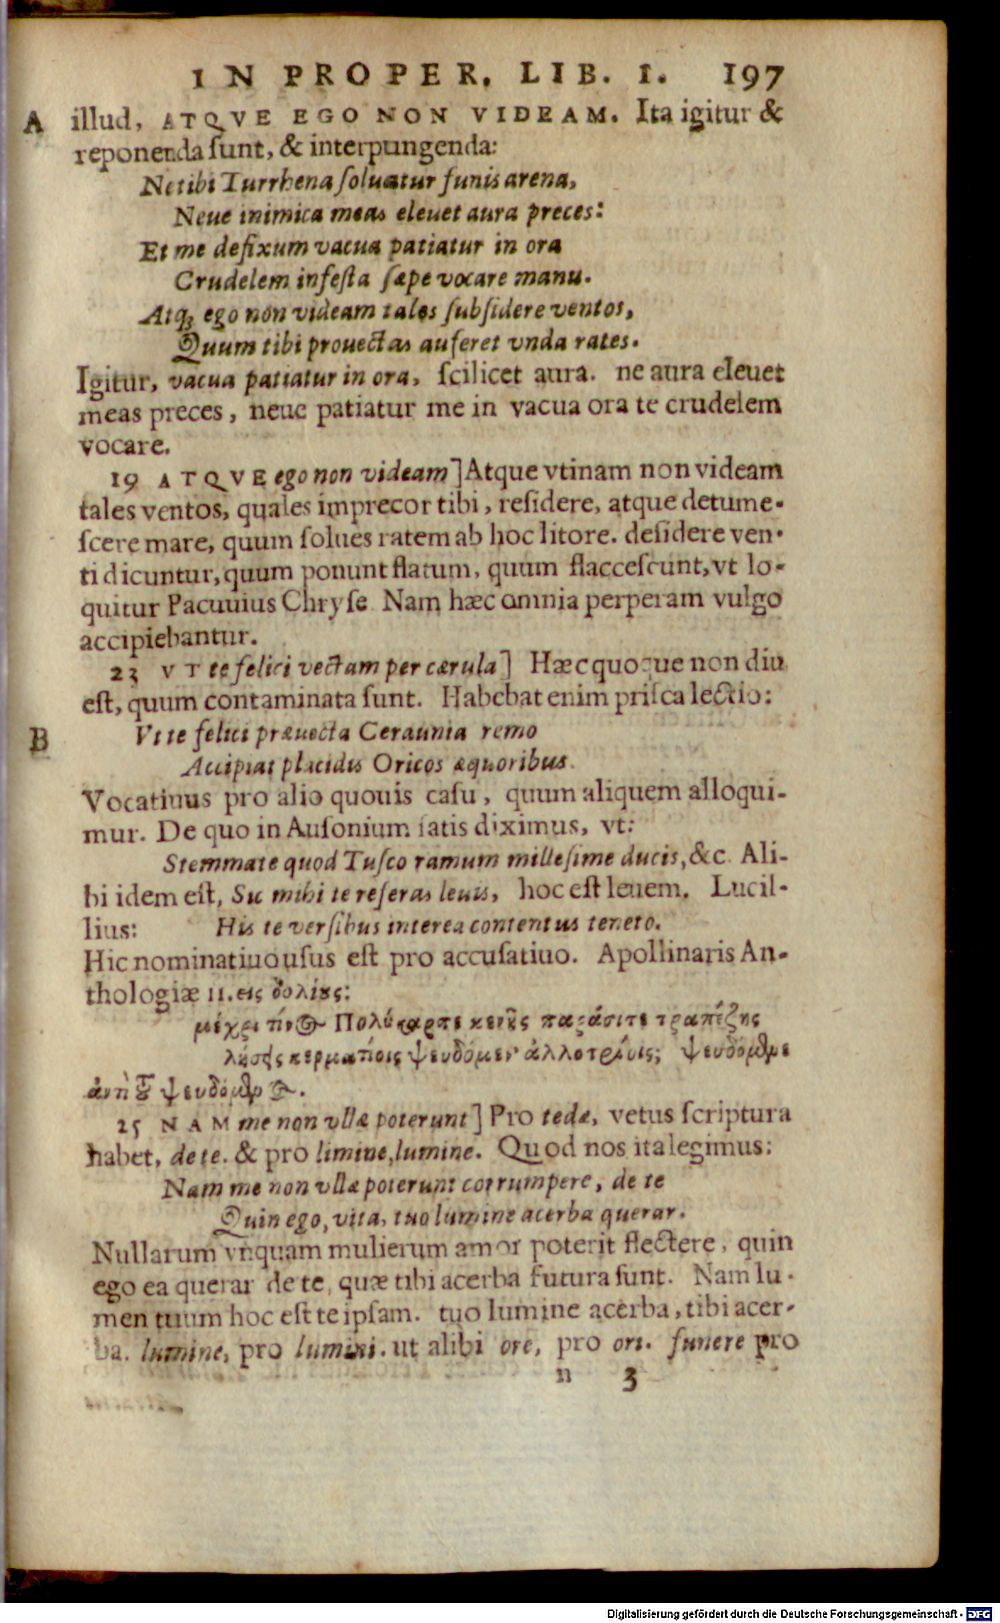 IN PROPER. LIB. I. 197
A illud, ATQVE EGO NON VIDEAM. Ita igitur &
reponenda ſunt, & interpungenda:
Ne tibi Turrhena ſoluatur funis arena,
Neue inimica meas eleuet aura preces:
Et me defixum vacua patiatur in ora
Crudelem infeſta ſæpe vocare manu.
Atq; ego non videam tales ſubſidere ventos,
Quum tibi prouectas auferet vnda rates.
Igitur, vacua patiatur in ora, ſcilicet aura. ne aura eleuet
meas preces, neue patiatur me in vacua ora te crudelem
vocare.
19 ATQVE ego non videam] Atque vtinam non videam
tales ventos, quales imprecor tibi, reſidere, atque detume-
ſcere mare, quum ſolues ratem ab hoc litore. deſidere ven-
ti dicuntur, quum ponunt flatum, quum flacceſcunt, vt lo-
quitur Pacuuius Chryſe. Nam hæc omnia perperam vulgo
accipiebantur.
23 VT te felici vectam per cærula] Hæc quoque non diu
eſt, quum contaminata ſunt. Habebat enim priſca lectio:
B Vt te felici præuecta Ceraunia remo
Accipiat placidis Oricos æquoribus.
Vocatiuus pro alio quouis caſu, quum aliquem alloqui-
mur. De quo in Auſonium ſatis diximus, vt:
Stemmate quod Tuſco ramum milleſime ducis, &c. Ali-
bi idem eſt, Sic mihi te referas leuis, hoc eſt leuem. Lucil-
lius: His te verſibus interea contentus teneto.
Hic nominatiuo uſus eſt pro accuſatiuo. Apollinaris An-
thologiæ II. εἰς δολίους:
μέχρι τίνος Πολύκαρπε κενῆς παράσιτε τραπέζης
λήσῃς κερματίοις ψευδόμεν' ἀλλοτρίοις; ψευδόμενε
ἀντὶ τοῦ ψευδόμενος.
25 NAM me non vllæ poterunt] Pro tedæ, vetus ſcriptura
habet, de te. & pro limine, lumine. Quod nos ita legimus:
Nam me non vllæ poterunt corrumpere, de te
Quin ego, vita, tuo lumine acerba querar.
Nullarum vnquam mulierum amor poterit flectere, quin
ego ea querar de te, quæ tibi acerba futura ſunt. Nam lu-
men tuum hoc eſt te ipſam. tuo lumine acerba, tibi acer-
ba. lumine, pro lumini. ut alibi ore, pro ori. funere pro
n 3
Digitalisierung gefördert durch die Deutsche Forschungsgemeinschaft - DFG